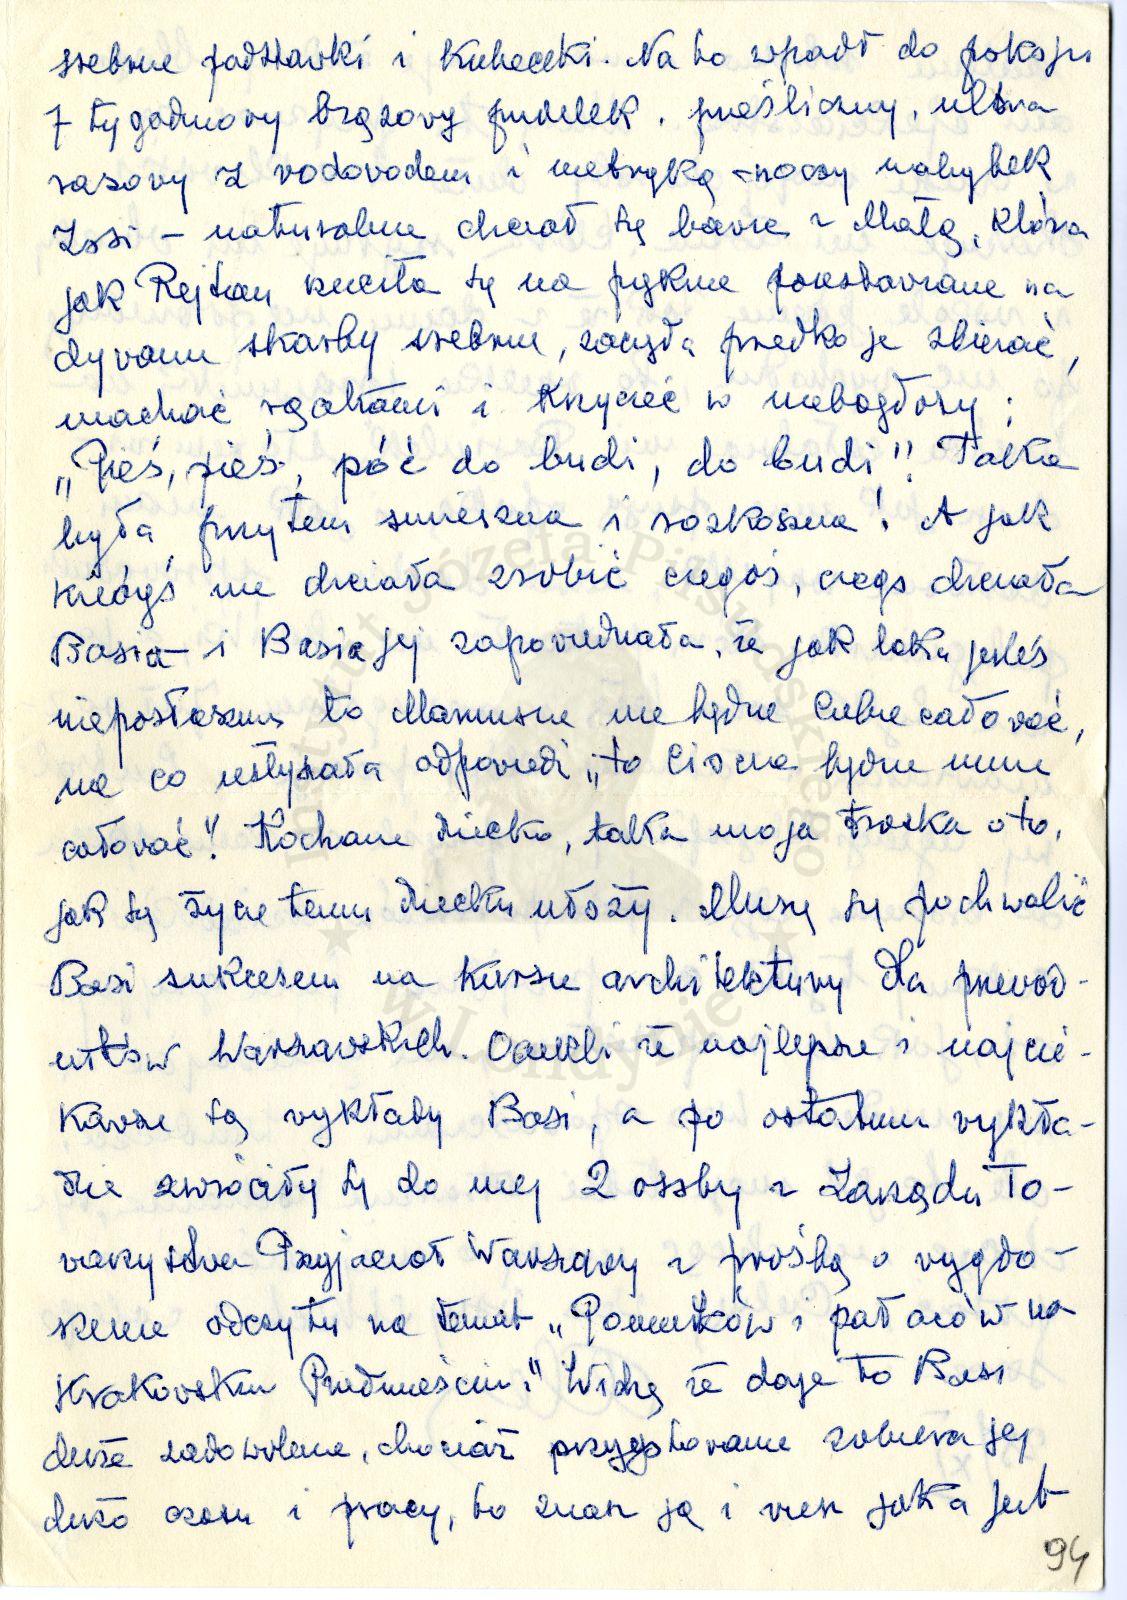 srebrne podstawki i kubeczki. Na to wpadł do pokoju
7 tygodniowy brązowy pudelek, prześliczny, ultra
rasowy z rodowodem i metryką – nowy nabytek
Issi – naturalnie chciał się bawić z Małą, która
jak Rejtan rzuciła się na pięknie poustawiane na
dywanie skarby srebrne, zaczęła prędko je zbierać,
machać rączkami i krzyczeć w niebogłosy:
„Pieś, pieś, póć do budi, do budi"! Taka
była przytem śmieszna i rozkoszna! A jak
kiedyś nie chciała zrobić czegoś, czego chciała
Basia i Basia jej zapowiedziała, że jak taka jesteś
nieposłuszna to Mamusia nie będzie Ciebie całować,
na co usłyszała odpowiedź „to Ciocia będzie mnie
całować"! Kochane dziecko, taka moja troska o to,
jak się życie temu dziecku ułoży. Muszę się pochwalić
Basi sukcesem na kursie architektury dla przewod-
ników Warszawskich. Orzekli że najlepsze i najcie-
kawsze są wykłady Basi, a po ostatnim wykła-
dzie zwróciły się do niej 2 osoby z Zarządu To-
warzystwa Przyjaciół Warszawy z prośbą o wygło-
szenie odczytu na temat „Pomników i pałaców na
Krakowskim Przedmieściu." Widzę że daje to Basi
duże zadowolenie, chociaż przygotowanie zabiera jej
dużo czasu i pracy, bo znasz ją i wiesz jaka jest
94
Instytut Józefa Piłsudskiego
w Londynie